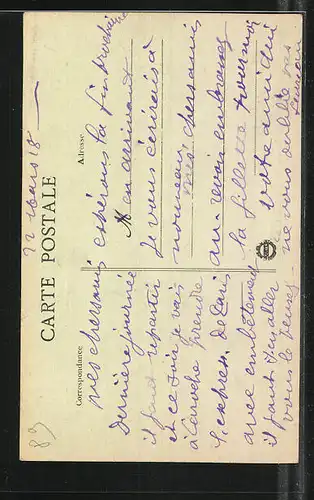 22 mars 18
CARTE POSTALE
Correspondance
Adresse
mes chers amis
Dernière journée
il faut repartir
et ce soir je vais
à Laroche prendre
l'express de Paris
avec embêtement
il faut s'en aller
vous le
espérons la fin prochaine
en arrivant
je vous écrirais à
nouveau, mes chers amis
au-revoir embrassez
la fillette pour moi
votre ami qui
ne vous oublie pas
83